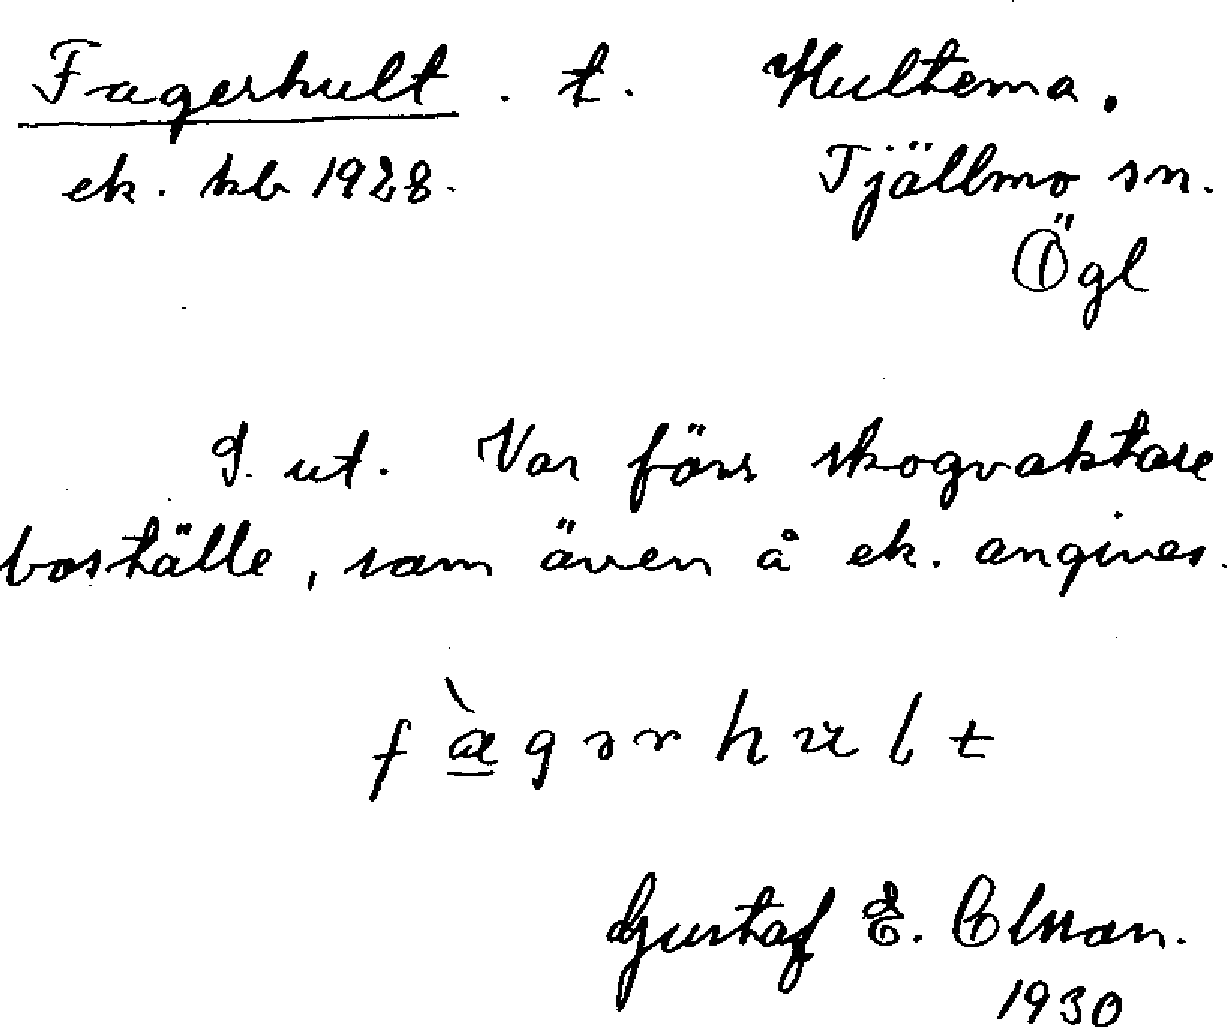 Fagerhult. t. Hultema.
ek. kb 1928. Tjällmo sn.
Ögl
J. ut. Var förr skogvaktare
boställe, som även å ek. angives.
fæ̀gərhult
Gustaf E. Olson.
1930